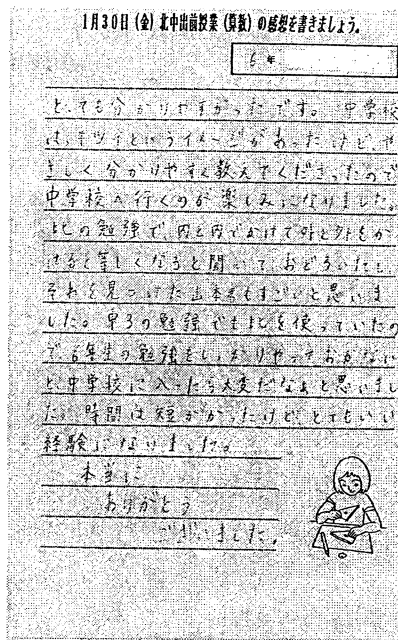 1月30日(金)北中出前授業(算数)の感想を書きましょう。
6年
とても分かりやすかったです。中学校
は、キツイというイメージがあったけど、や
さしく分かりやすく教えてくださったので
中学校へ行くのが楽しみになりました。
比の勉強で、内と内でかけて外と外をか
けると等しくなると聞いて、おどろいたし、
それを見つけた
もすごいと思いま
した。中3の勉強でも比を使っていたの
で、6年生の勉強をしっかりやっておかない
と、中学校に入ったら大変だなぁと思いまし
た。時間は短かかったけど、とてもいい
経験になりました。
本当に
ありがとう
ございました。